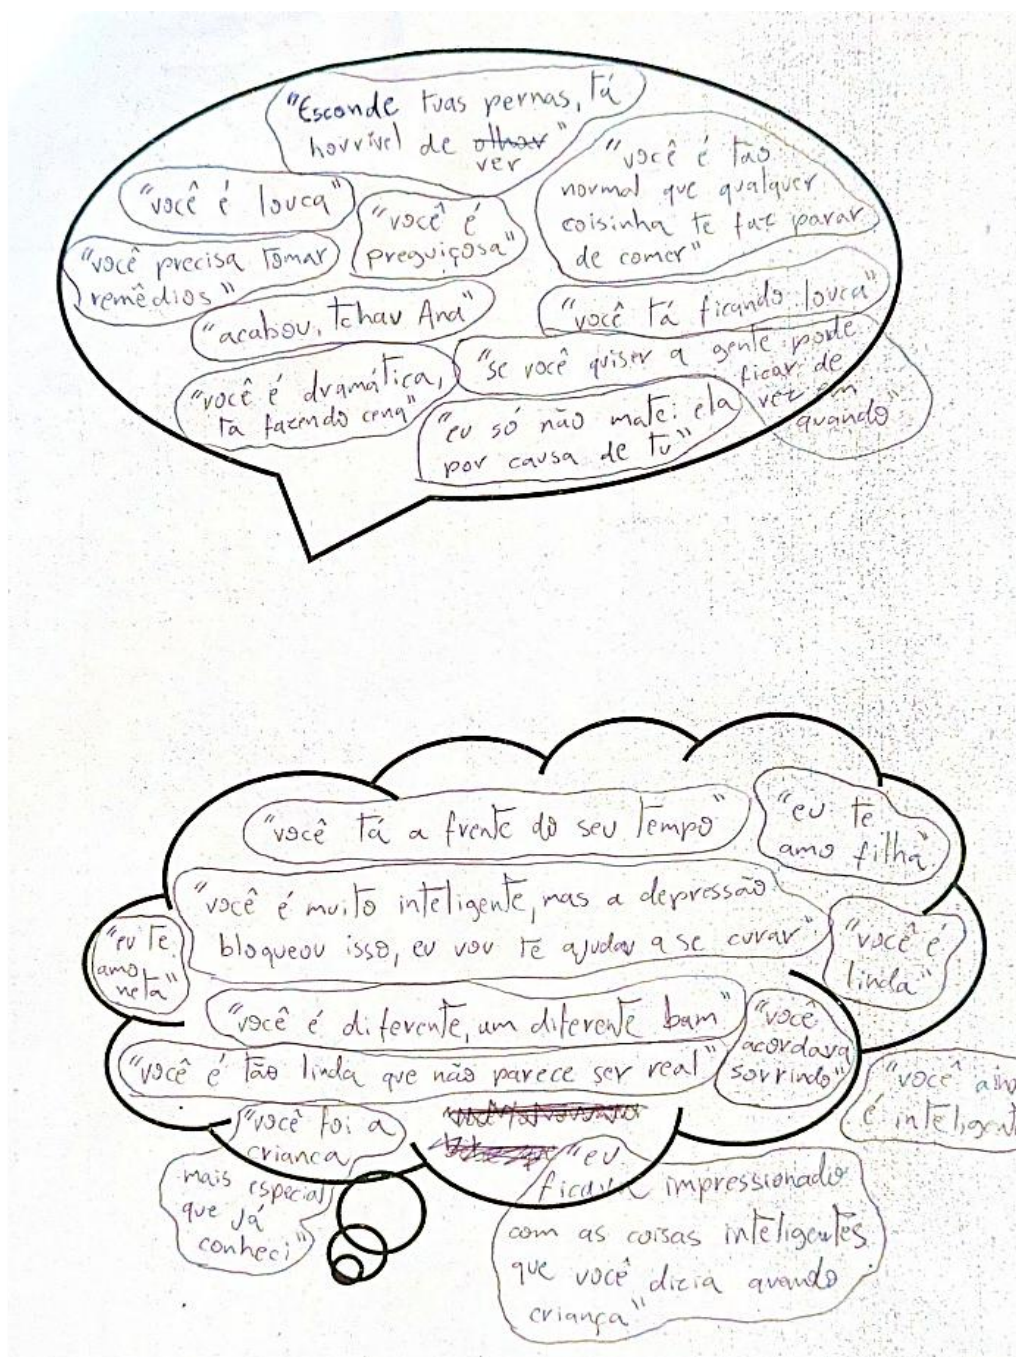 "Esconde tuas pernas, tá
horrível de olhar"
ver
"você é tão
normal que qualquer
coisinha te faz parar
de comer"
"você é louca"
"você é
preguiçosa"
"você precisa tomar
remédios"
"acabou, tchau Ana"
"você tá ficando louca"
"você é dramática,
tá fazendo cena"
"se você quiser a gente pode
ficar de
vez em
quando"
"eu só não matei ela
por causa de tu"
"você tá a frente do seu tempo"
"eu te
amo filha"
"você é muito inteligente, mas a depressão
bloqueou isso, eu vou te ajudar a se curar"
"eu te
amo
neta"
"você é
linda"
"você é diferente, um diferente bom"
"você
acordava
sorrindo"
"você é tão linda que não parece ser real"
"você
é inteligent
"você foi a
criança
mais especial
que já
conheci"
"eu
ficava impressionado
com as coisas inteligentes
que você dizia quando
criança"